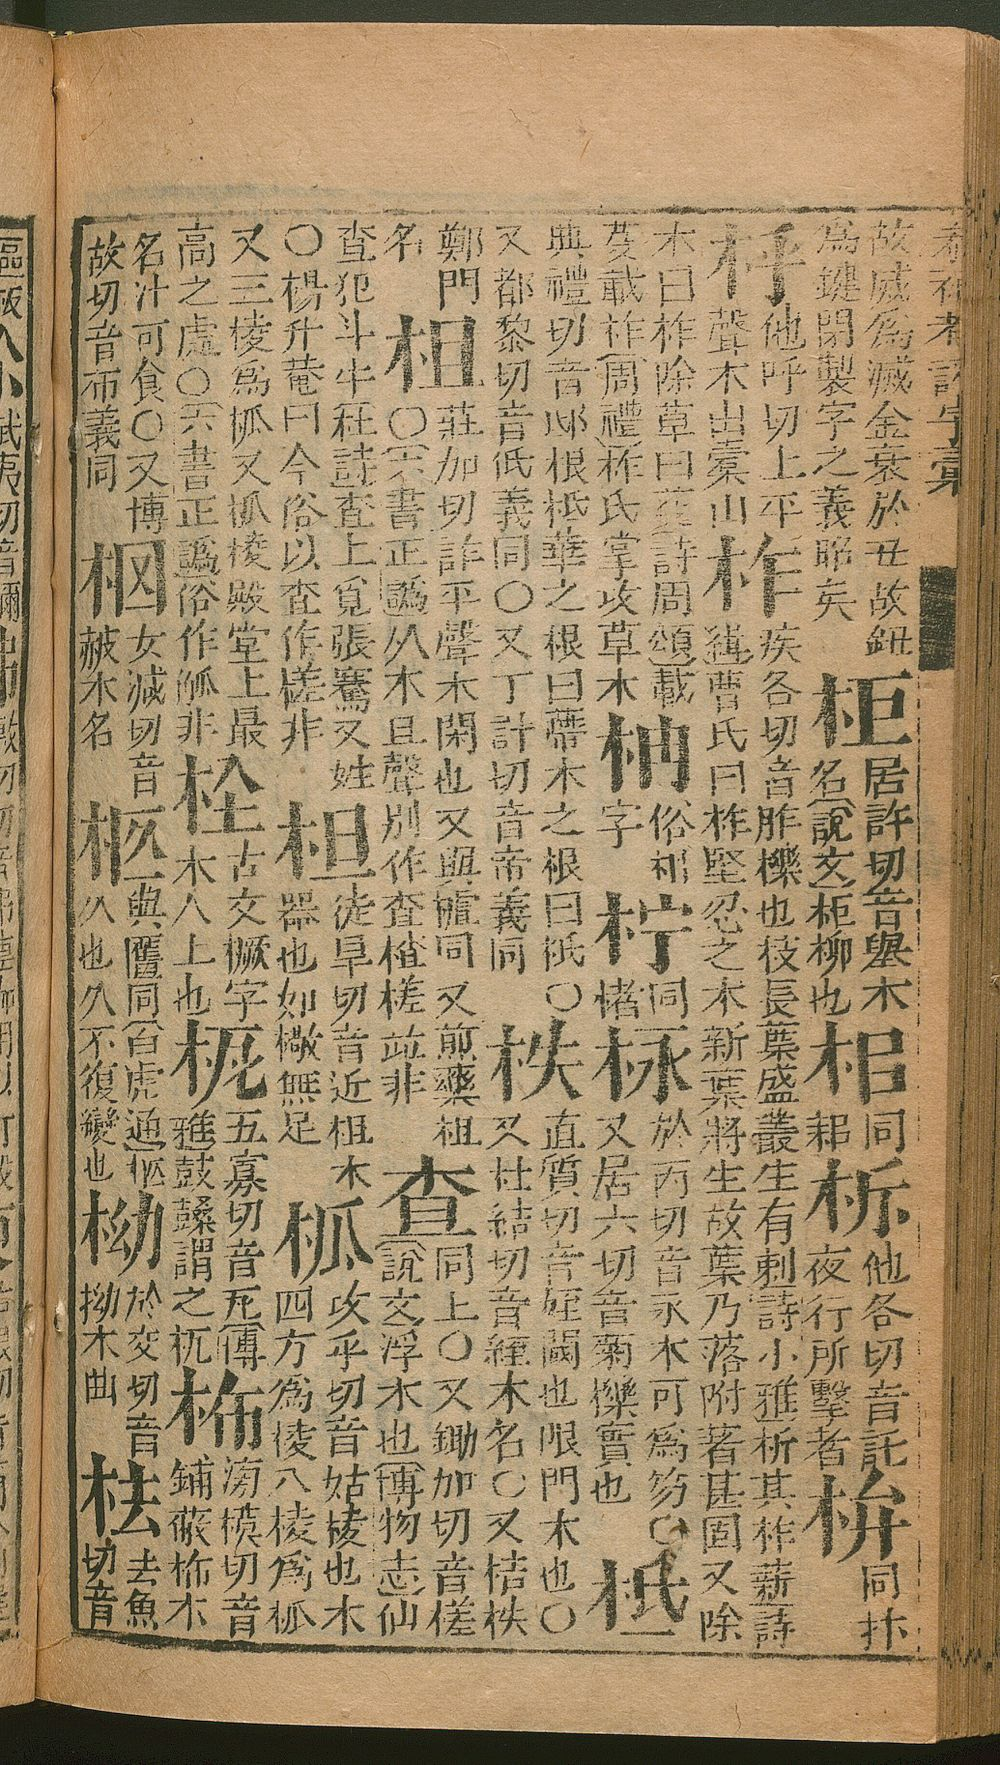 故威為滅金衰於丑故鈕
為鍵閉製字之義昭矣
柜
居許切音舉木
名說文柜柳也
梠
同
耜
柝
他各切音託
夜行所擊者
栟
同抃
他呼切上平
聲木出橐山
柞
疾各切音胙櫟也枝長葉盛叢生有刺詩小雅析其柞薪詩
緝曹氏曰柞堅忍之木新葉將生故葉乃落附著甚固又除
木曰柞除草曰芟詩周頌載
芟載柞周禮柞氏掌攻草木
柟
俗枏
字
柠
同
楮
柡
於丙切音永木可為笏○
又居六切音菊櫟實也
柢
典禮切音邸根柢華之根曰蔕木之根曰柢○
又都黎切音低義同○又丁計切音帝義同
柣
直質切音姪閾也限門木也○
又杜結切音絰木名○又桔柣
鄭門
名
柤
莊加切詐平聲木閑也又與樝同又煎藥柤
○六書正譌从木且聲別作查楂槎竝非
查
同上○又鋤加切音槎
說文浮木也博物志仙
查犯斗牛杜詩查上覓張騫又姓
○楊升菴曰今俗以查作槎非
柦
徒旱切音近柤木
器也如橔無足
柧
攻乎切音姑棱也木
四方為棱八棱為柧
又三棱為柧又柧棱殿堂上最
高之處○六書正譌俗作觚非
古文橛字
木入上也
枙
五寡切音瓦博
雅鼓鼜謂之枙
柨
滂模切音
鋪蔽柨木
名汁可食○又博
故切音布義同
女減切音
赧木名
柩
與匶同白虎通柩
久也久不復變也
於交切音
拗木曲
㭕
去魚
切音